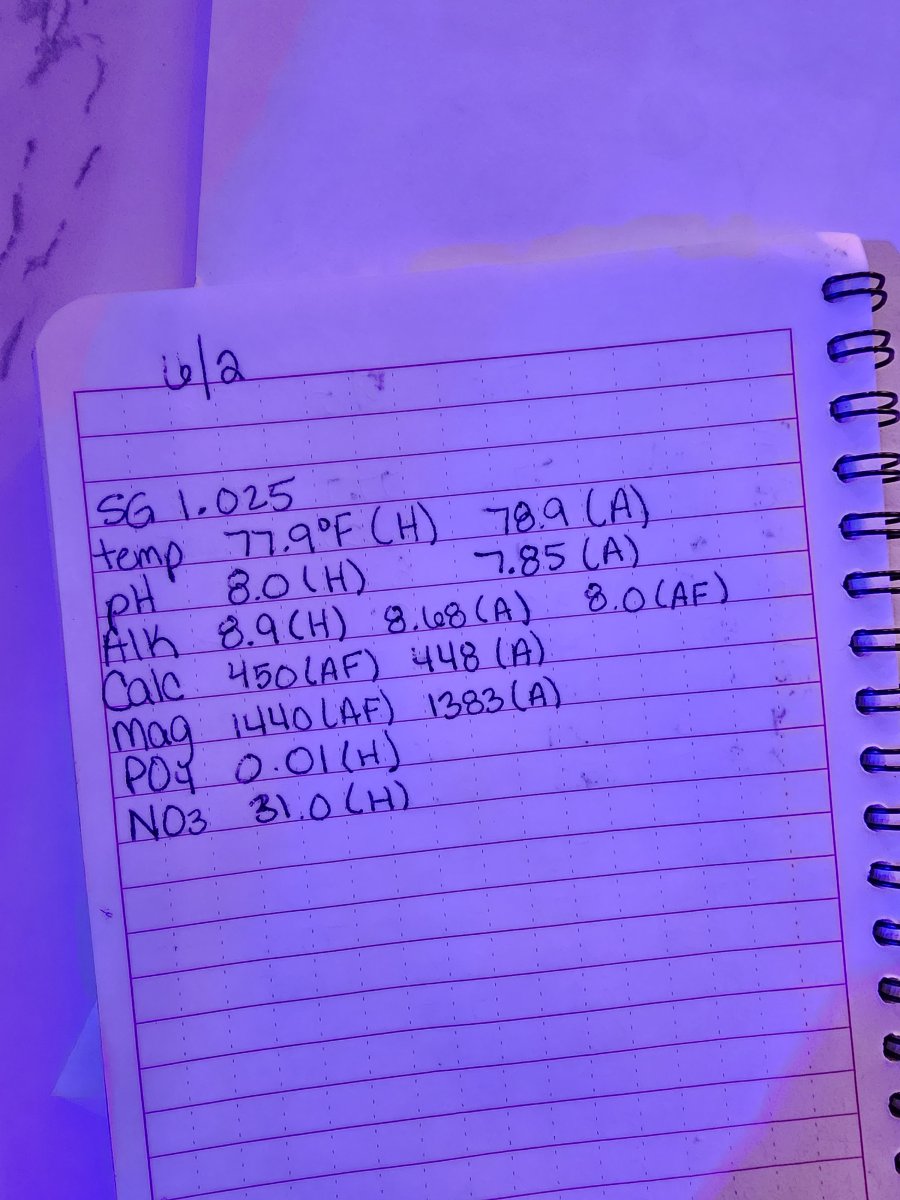 6/2
SG 1.025
temp 77.9°F (H) 78.9 (A)
pH 8.0 (H) 7.85 (A)
Alk 8.9 (H) 8.68 (A) 8.0 (AF)
Calc 450 (AF) 448 (A)
Mag 1440 (AF) 1383 (A)
PO4 0.01 (H)
NO3 31.0 (H)